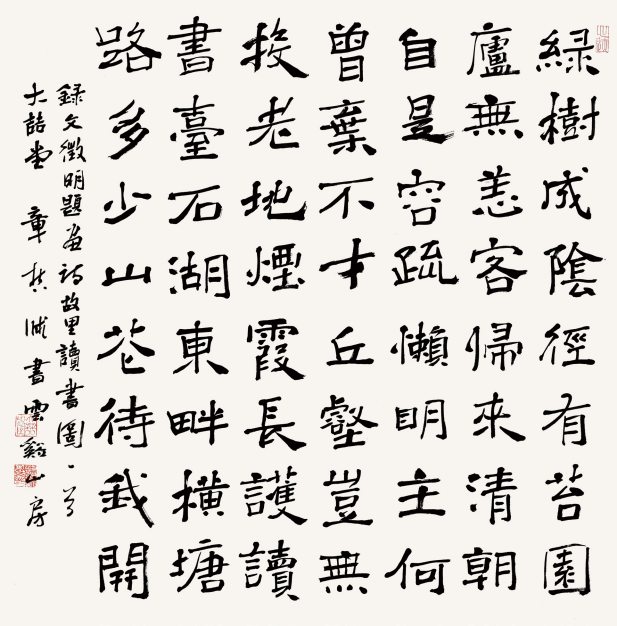 綠樹成陰徑有苔園
廬無恙客歸來清朝
自是容疏懶明主何
曾棄不才丘壑豈無
投老地煙霞長護讀
書臺石湖東畔橫塘
路多少山花待我開
錄文徵明題畫詩故里讀書圖一首
大喆堂 章 書雲谿山房